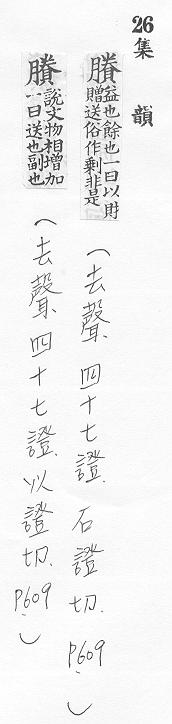 26集韻
賸益也餘也一曰以財贈送俗作剩非是(去聲.四十七證.石證切.P609.)
賸說文物相增加一曰送也副也(去聲.四十七證.以證切.P609.)